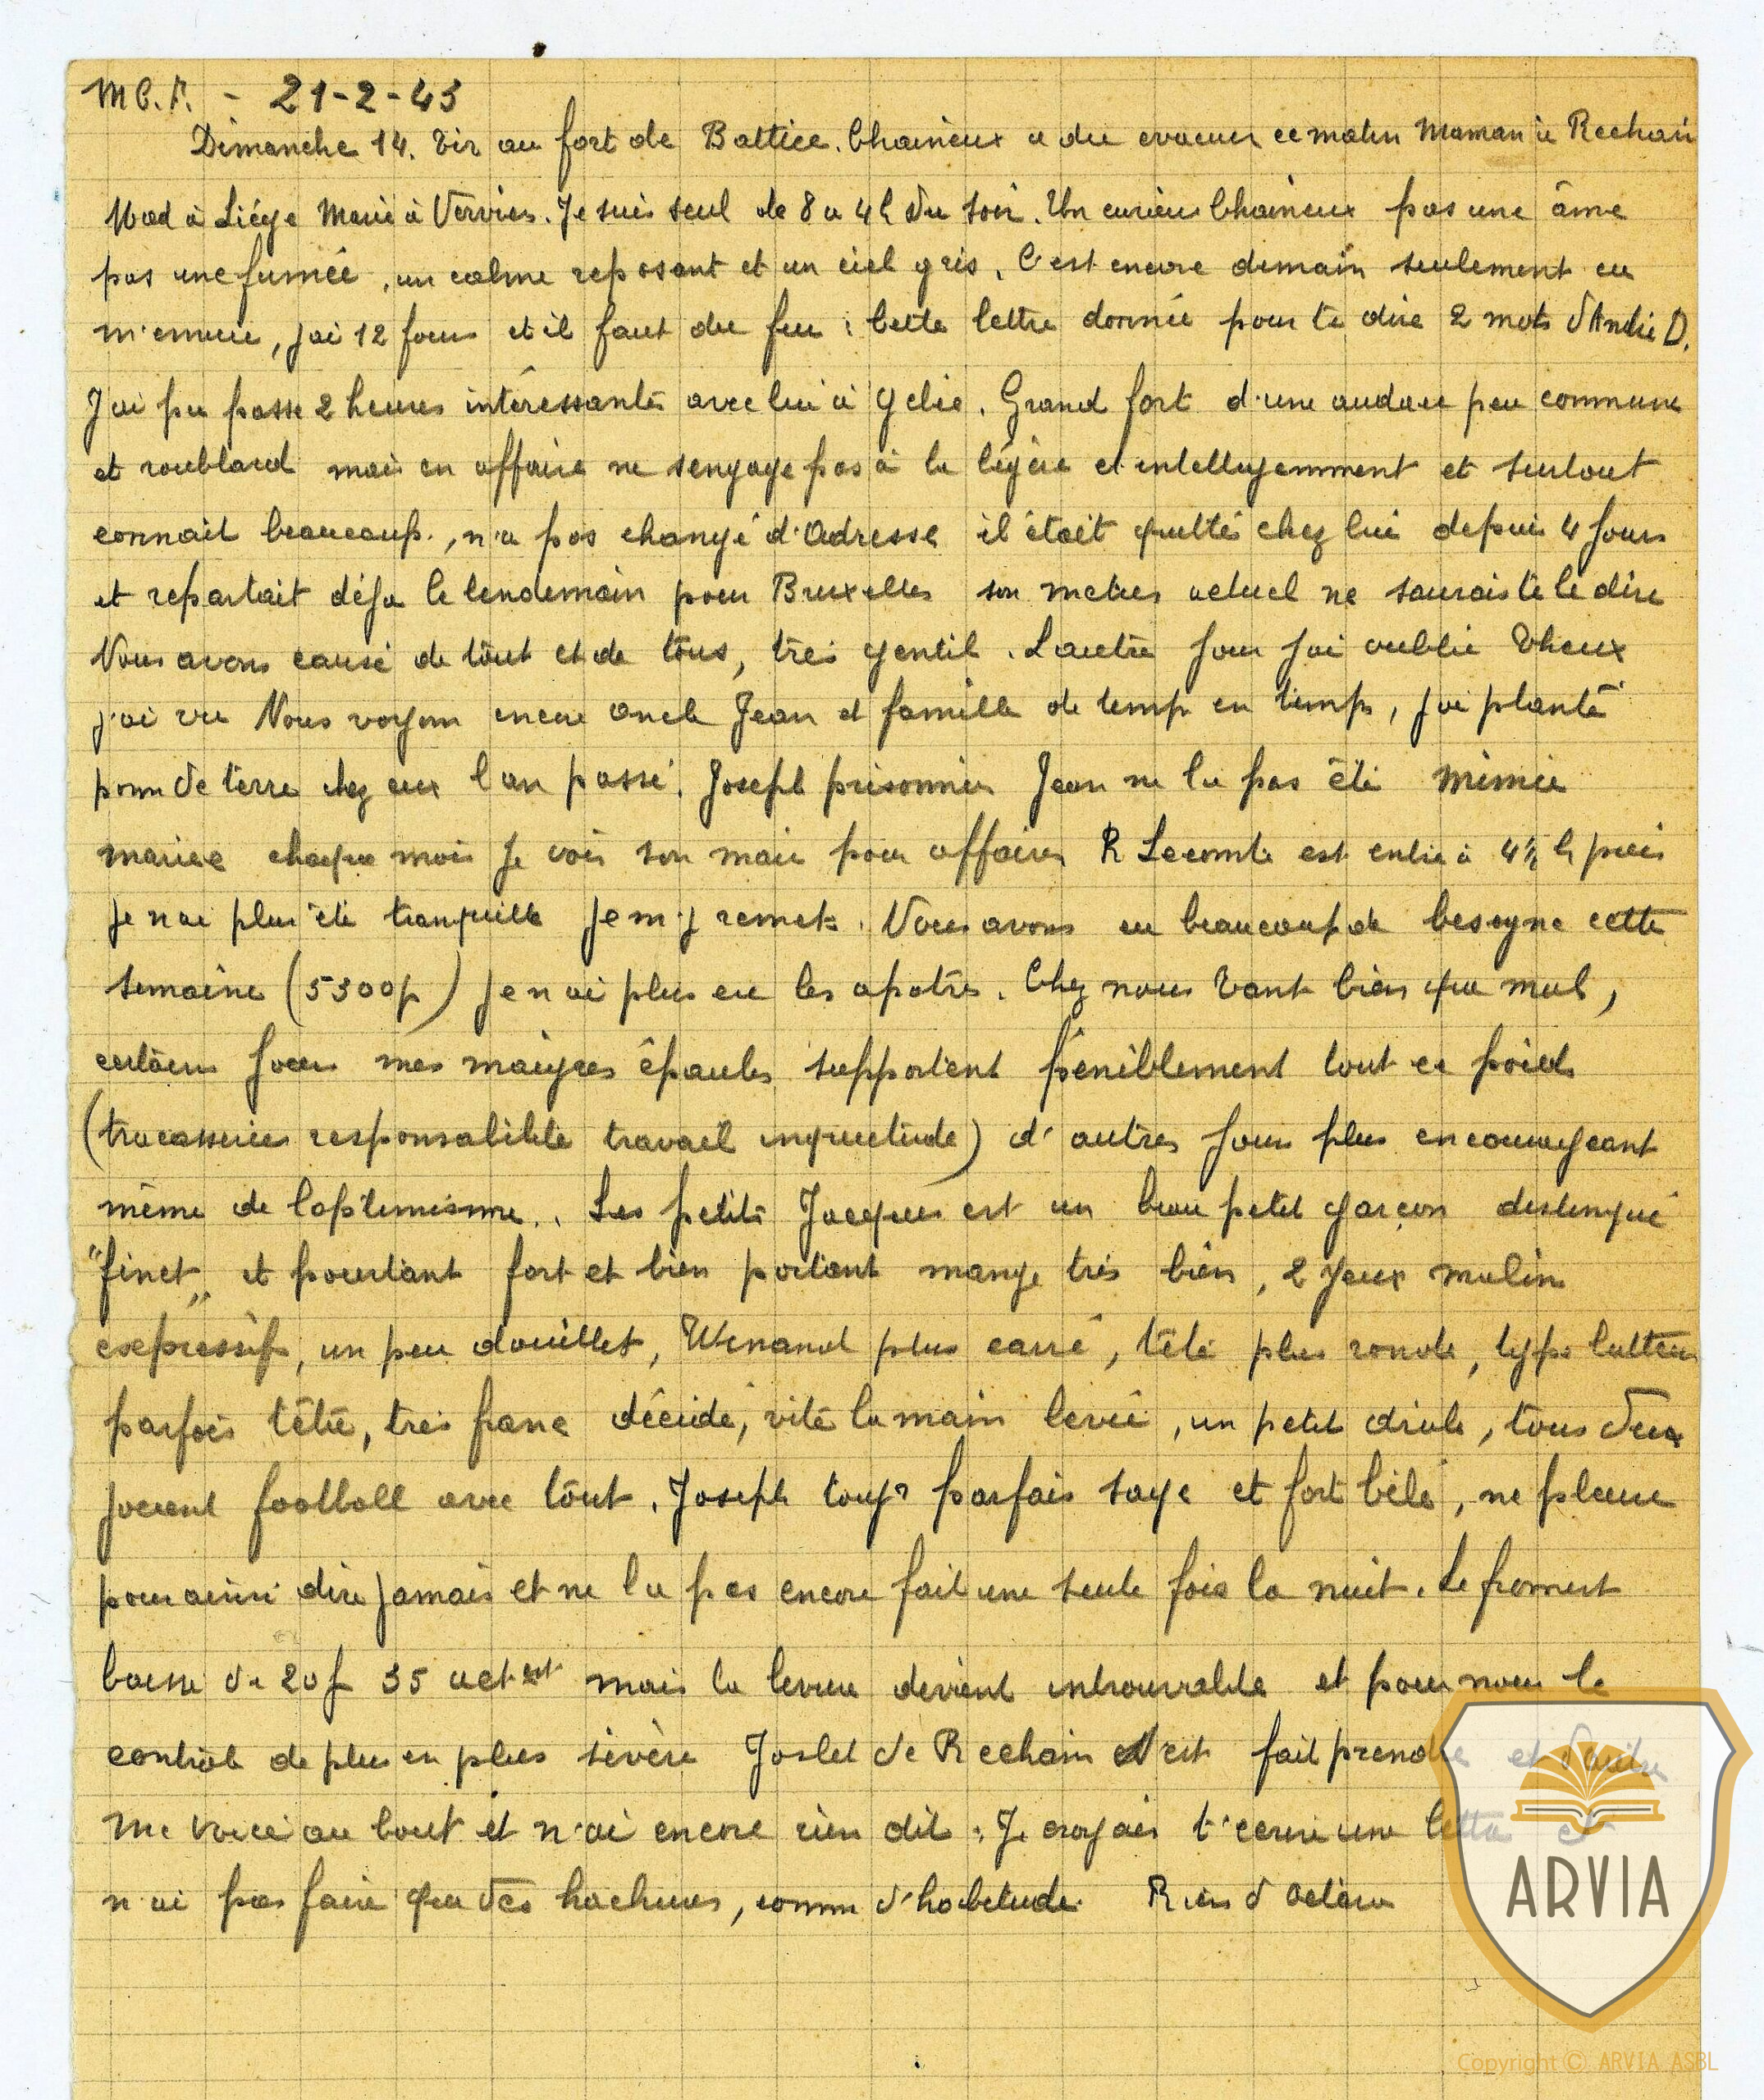 M C. F. - 21-2-43
Dimanche 14. Tir au fort de Battice. Chaineux a du evacuer ce matin Maman à Rechain
Mad à Liége Marie à Verviers. Je suis seul de 8 a 4h du soir. Un curieu Chaineux pas une âme
pas une fumée, un calme reposant et un ciel gris. C'est encore demain seulement
m'ennuie, j'ai 12 fours et il faut du feu : cette lettre donnée pour te dire 2 mots d'André D.
J'ai pu passe 2 heures intéressantes avec lui à . Grand fort d'une audace peu commune
et roublard mais en affaire ne sengage pas à la légère et intelligemment et surtout
connait beaucoup., n'a pas changé d'Adresse il était quitté chez lui depuis 4 jours
et repartait déja le lendemain pour Bruxelles son metier actuel ne saurais te le dire
Nous avons causé de tout et de tous, très gentil. Lautre jour j'ai oublié Theux
j'ai vu Nous voyons encore oncle Jean et famille de temp en temps, j'ai planté
pomm de terre chez eux l'an passé. Joseph prisonnier Jean ne la pas été Mimie
mariee chaque mois je vois son mari pour affaires R Lecomte est entré à 4½ h puis
je nai plus été tranquille je m'y remets. Nous avons eu beaucoup de besogne cette
semaine (5300p) je n'ai plus eu les apotres. Chez nous tant bien que mal,
certains jours mes maigres épaules supportent péniblement tout ce poids
(tracasseries responsabilite travail inquietude) d'autres jours plus encourageant
même de loptimisme.. Les petits Jacques est un beau petit garçon distingué
"finet" et pourtant fort et bien portant mange très bien, 2 yeux malins
expressifs, un peu douillet, Winand plus carré, tête plus ronde, type lutteur
parfois têtu, très franc décidé, vite la main levée, un petit drôle, tous deux
jouent football avec tout. Joseph toujrs parfais sage et fort bêbé, ne pleure
pour ainsi dire jamais et ne la pas encore fait une seule fois la nuit. Le froment
baisse de 20f 35 actent mais la levure devient introuvable et pour nous le
contrôle de plus en plus sévère Joslet de Rechain s'est fait prendre et d'autres
Me voici au bout et n'ai encore rien dit. Je croyais t'écrire une lettre et
n'ai pas faire que des hachures, comme d'habitude. Rien d'Octave
ARVIA
Copyright © ARVIA ASBL